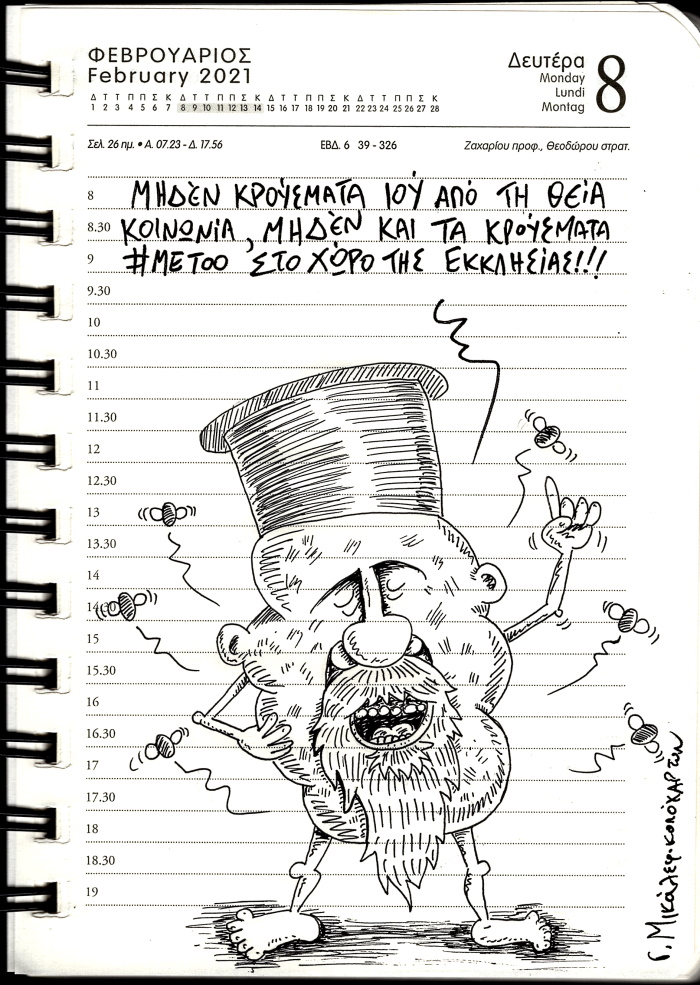 ΦΕΒΡΟΥΑΡΙΟΣ
February 2021
Δ Τ Τ Π Π Σ Κ Δ Τ Τ Π Π Σ Κ Δ Τ Τ Π Π Σ Κ Δ Τ Τ Π Π Σ Κ
1 2 3 4 5 6 7 8 9 10 11 12 13 14 15 16 17 18 19 20 21 22 23 24 25 26 27 28
Δευτέρα
Monday
Lundi
Montag
8
Σελ. 26 ημ. • Α. 07.23 - Δ. 17.56
ΕΒΔ. 6 39 - 326
Ζαχαρίου προφ., Θεοδώρου στρατ.
8 ΜΗΔΕΝ ΚΡΟΎΣΜΑΤΑ ΙΟΎ ΑΠΌ ΤΗ ΘΕΊΑ
8.30 ΚΟΙΝΩΝΊΑ, ΜΗΔΈΝ ΚΑΙ ΤΑ ΚΡΟΎΣΜΑΤΑ
9 #METOO ΣΤΟ ΧΏΡΟ ΤΗΣ ΕΚΚΛΗΣΊΑΣ!!!
9.30
10
10.30
11
11.30
12
12.30
13
13.30
14
14.30
15
15.30
16
16.30
17
17.30
18
18.30
19
Γ. Μικάλεφ.κοπόχαρτων